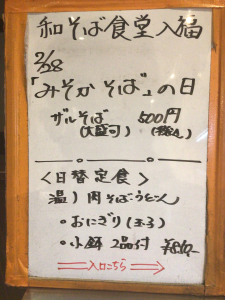 和そば食堂入福
2/28
「みそかそば」の日
ザルそば 500円
(大盛可) (税込)
<日替定食>
温)肉そばうどん
・おにぎり(玉子)
・小鉢 2品付
入口こちら